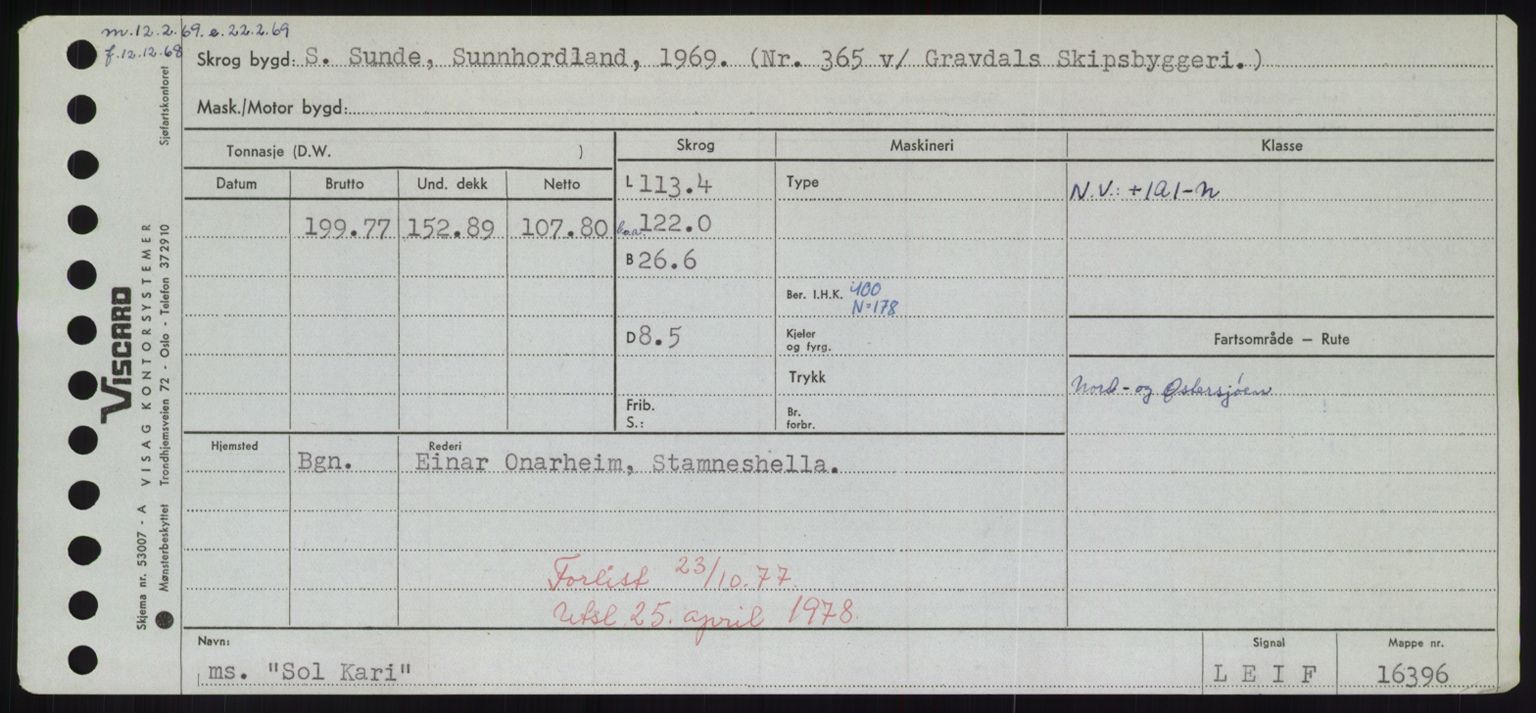 m.12.2.69. e.22.2.69
f.12.12.68
Skrog bygd: S. Sunde, Sunnhordland, 1969. (Nr. 365 v/ Gravdals Skipsbyggeri.)
Mask./Motor bygd:
Tonnasje (D.W. ) Skrog Maskineri Klasse
Datum Brutto Und. dekk Netto L 113.4 Type N.V.: +1A1-N
199.77 152.89 107.80 Loa 122.0
B 26.6
Ber. I.H.K. 400
N=178
D 8.5 Kjeler og fyrg. Fartsområde — Rute
Trykk Nord- og Østersjøen
Frib.
S.: Br. forbr.
Hjemsted Rederi
Bgn. Einar Onarheim, Stamneshella.
Forlist 23/10.77.
Utsl. 25. april 1978.
Navn: Signal Mappe nr.
ms. "Sol Kari" L E I F 16396
Skjema nr. 53007 - A VISAG KONTORSYSTEMER
VISCARD
Mønsterbeskyttet Trondhjemsveien 72 - Oslo - Telefon 372910 Sjøfartskontoret